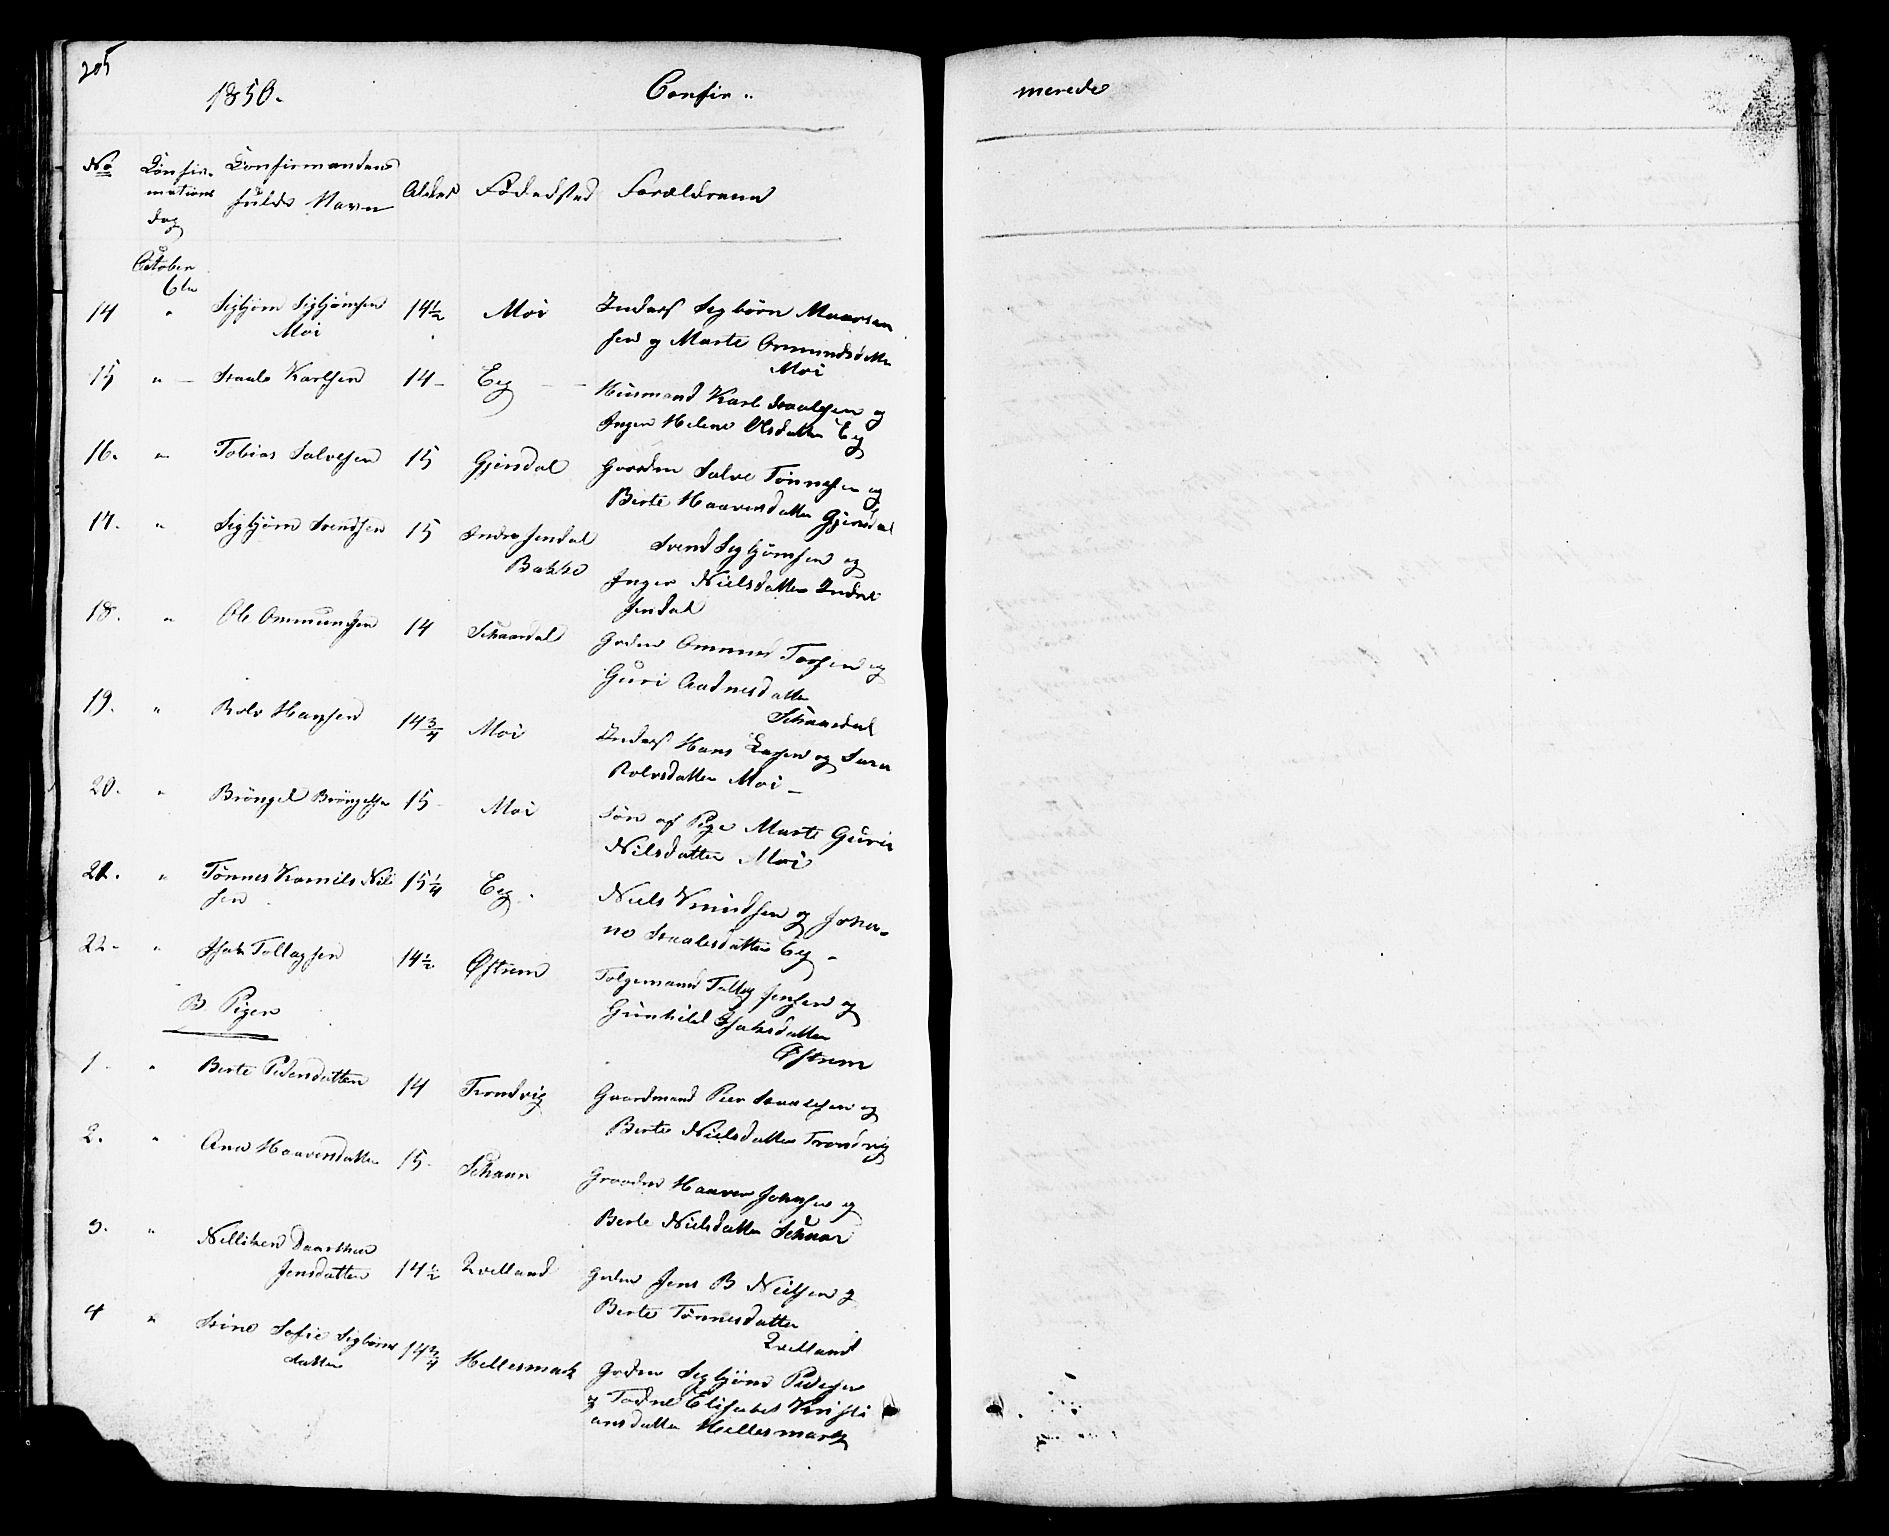 205
1850. Confir- merede
No Confir- Confirmandens Alder Fødested Forældrene
mations fulde Navn
dag
October
6te
14 " Sigbjørn Sigbjørnsen 14½ Moi Inders Sigbørn
Moi sen og Marte Ommundsdatter
Moi
15 " Staale Karlsen 14 Eeg Husmand Karl Staalesen og
Inger Helene Olsdatter Eeg
16. " Tobias Salvesen 15 Gjersdal Gaardm Salve Tønnesen og
Berte Haaversdatter Gjersdal
17. " Sigbjørn Svendsen 15 Indresendal Svend Sigbjørnsen og
Bakke Inger Nielsdatter Indre
sendal
18. " Ole Ommundsen 14 Skaardal Grdm Ommund Torsen og
Guri Aadnesdatter
Skaardal
19. " Rolv Hansen 14¾ Moi Inders Hans og
Rolvsdatter Moi
20. " Brøngel Brøngelsen 15 Moi Søn af Pige Marte Guri
Nilsdatter Moi
21. " Tønnes Kornils Nil 15¼ Eeg. Niels Knudsen og Johan-
sen ne Staalesdatter Eeg
22 " Isak Tollagsen 14½ Østrem Folgemand Tollag Jensen og
B. Piger Gunhild Isaksdatter
Østrem
1 " Berte Pedersdatter 14 Trondvig Gaardmand Peer Staalesen og
Berte Nielsdatter Trondvig
2. " Ana Haaversdatter 15 Skaar Gaardm Haaver Johnsen og
Berte Nielsdatter Skaar
3. " Nilliken Daarthea
Jensdatter 14½ Qvelland Grdm Jens B Nielsen og
Berte Tønnesdatter
Qvelland
4 " Stine Sofie Sigbørns 14¾ Hellesmark Grdm Sigbjørn Pedersen
datter og Todne Elisabet Kristi
ansdatter Hellesmark